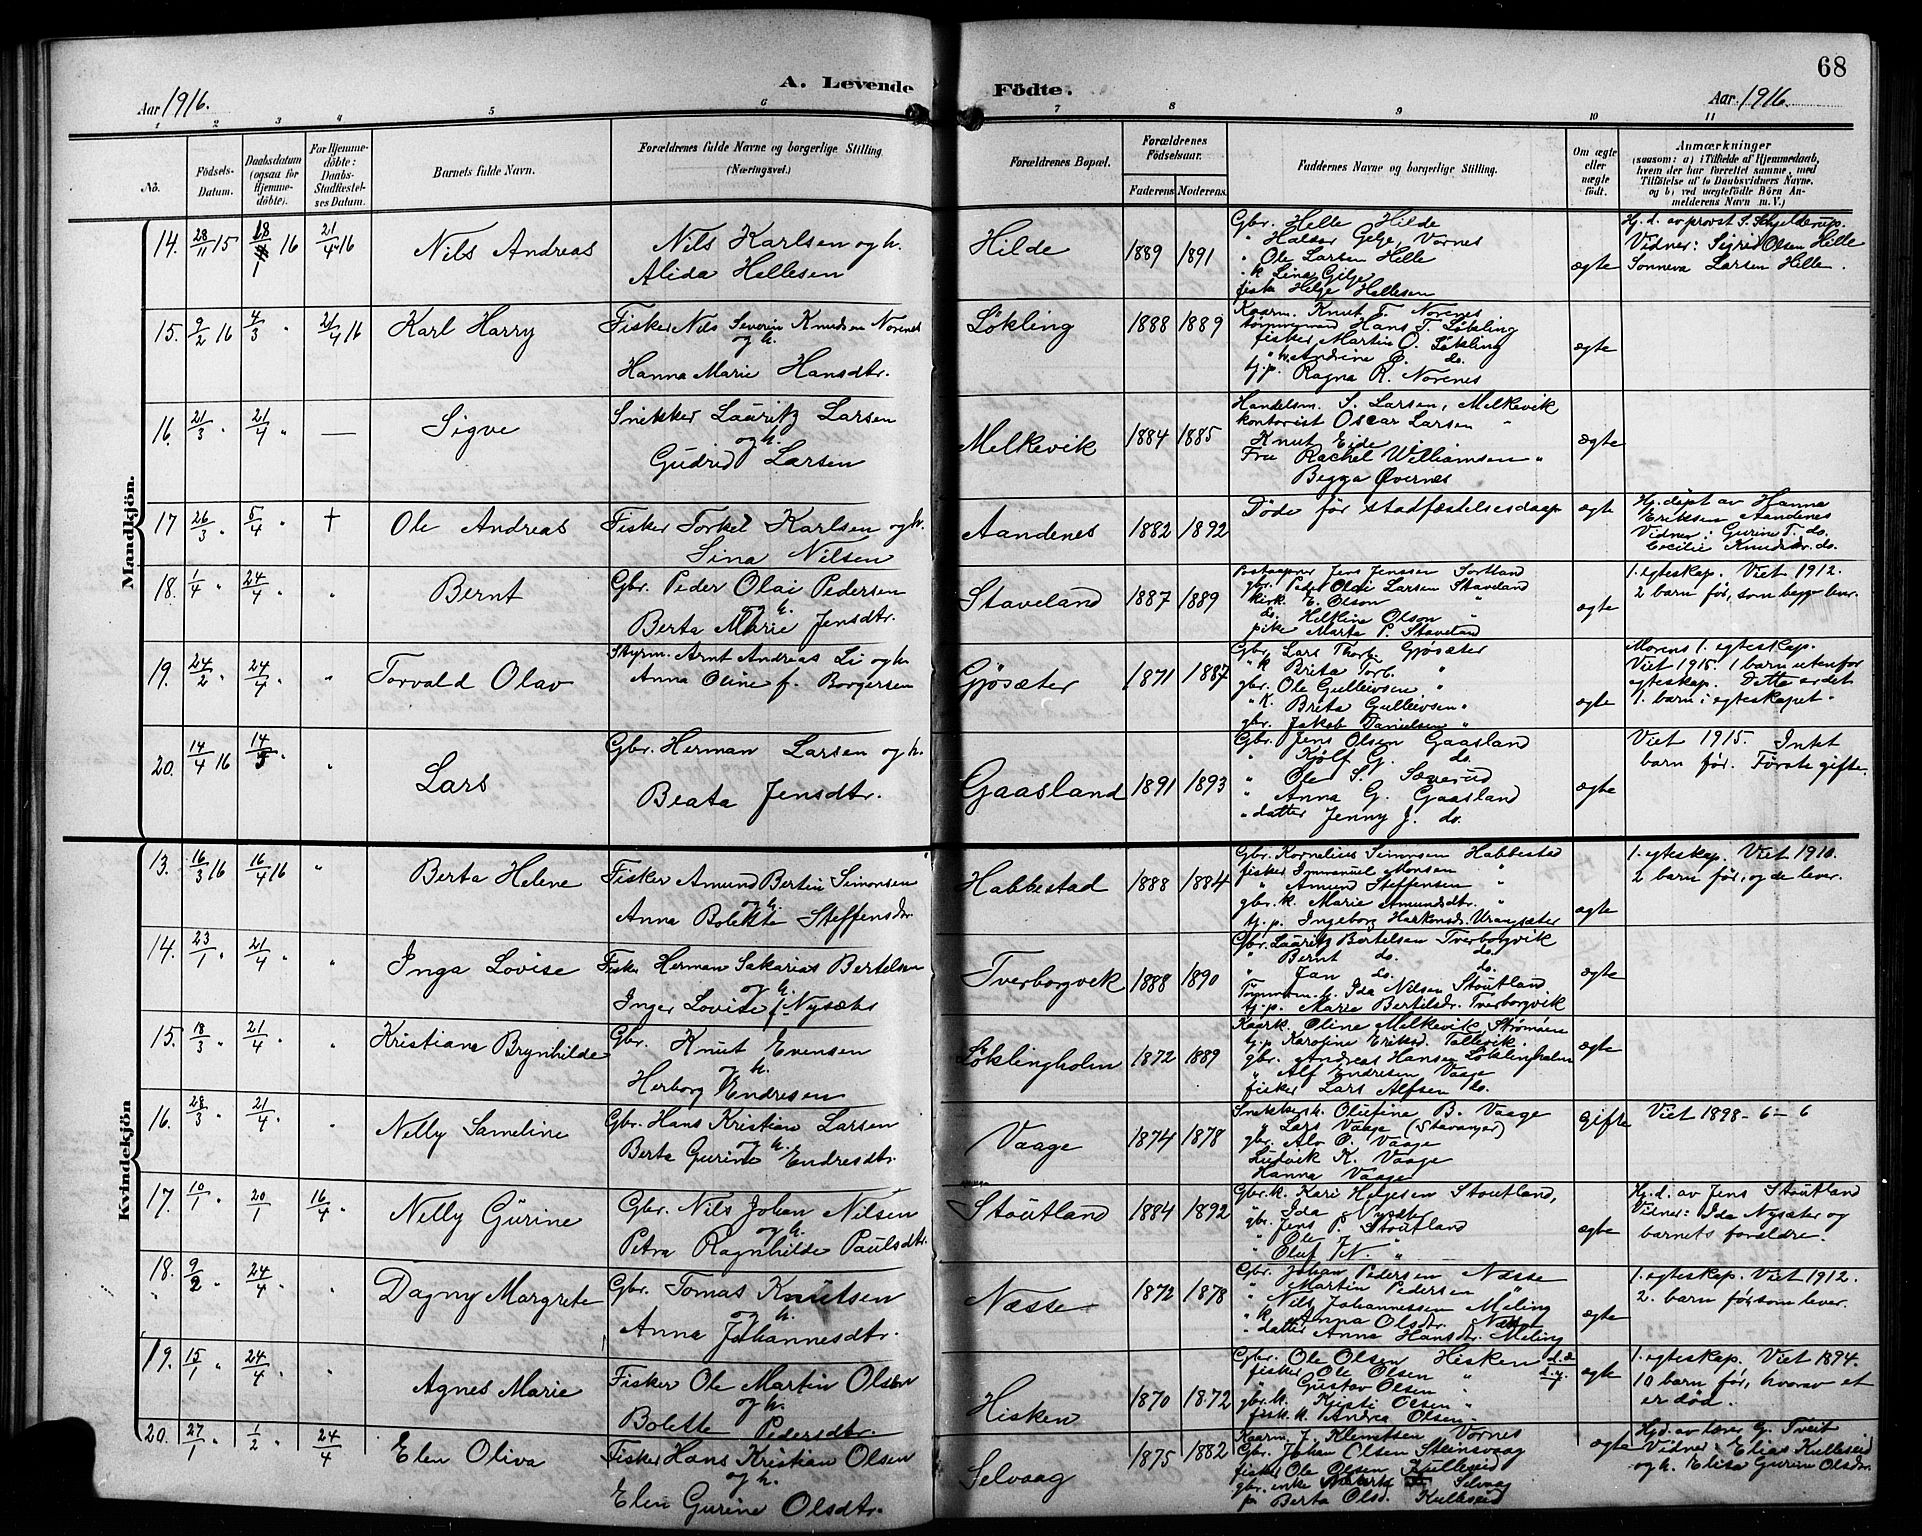 68
A. Levende Födte.
Aar 1916.
Aar 1916.
1 2 3 4 5 6 7 8 9 10 11
No.
Födsels-Datum.
Daabsdatum (ogsaa for Hjemme-döbte).
For Hjemme-döbte: Daabs-Stadfæstel-ses Datum.
Barnets fulde Navn.
Forældrenes fulde Navne og borgerlige Stilling. (Næringsvei.)
Forældrenes Bopæl.
Forældrenes Födselsaar.
Faderens. Moderens.
Faddernes Navne og borgerlige Stilling.
Om ægte eller uægte födt.
Anmærkninger
(saasom: a) i Tilfælde af Hjemmedaab, hvem der har forrettet samme, med Tilföielse af to Daabsvidners Navne, og b) ved uægtefödte Börn An-melderens Navn m. V.)
Mandkjön.
14. 28/11 15 16 21/4 16 Nils Andreas
Nils Karlsen og h.
Alida Hellesen
Hilde 1889 1891
Gbr. Helle Hilde
" Haldor Gilje Vornes
" Ole Larsen Hille
" k Lina Gilje
fisk. Helge Hellesen
ægte
Hj. d. av provst S. Schjelderup.
Vidner: Sigrid Olsen Hille
Sonneva Larsen Hille.
15. 9/2 16 4/3 " 21/4 16 Karl Harry
Fisker Nils Severin Knudsen Norenes
og h.
Hanna Marie Hansdtr.
Lökling 1888 1889
Kaarm. Knut T. Norenes
tømmermand Hans T. Lökling
fisker Martin O. Lökling
" h. Andrine Ø. do.
tj.p. Ragna R. Norenes
ægte
16. 21/3 " 21/4 " — Sigve
Snikker Lauritz Larsen
og h.
Gudrid Larsen
Melkevik 1884 1885
Handelsm. S. Larsen, Melkevik
kontorist Oscar Larsen "
Knut Eide
Fru Rachel Williamsen "
Begga Øvernes
ægte
17 26/3 " 5/4 " † Ole Andreas
Fisker Torkel Karlsen og h.
Lina Nilsen
Aandenes 1882 1892
Döde för stadfæstelsesdaap
ægte
Hj. döpt av Hanna
Eriksen Aandenes
Vidner: Gurine T. do.
Cecilie Knudsdr. do.
18. 1/4 " 24/4 " " Bernt
Gbr. Peder Olai Pedersen
og h.
Berta Marie Jensdtr.
Staveland 1887 1889
Postaapner Jens Jenssen Sortland
gbr. Peder Olai Larsen Staveland
kirk. E. Olson "
do. Helkine Olson "
pike Marta P. Staveland
ægte
1. egteskap. Viet 1912.
2 barn för, som begge lever.
19. 24/2 " 24/4 " " Torvald Olav
Styrm. Arnt Andreas Li og h.
Anna Oline f. Borgersen
Gjösæter 1871 1887
Gbr. Lars Thorb. Gjösæter
" k Brita Torb. "
gbr. Ole Gulleivsen "
" k. Brita Gulleivsen "
gbr. Jakob Danielsen "
ægte
Morens 1. egteskap.
Viet 1915. 1 barn utenfor
egteskap. Dette er det
1. barn i egteskapet.
20. 14/4 16 14/5 " Lars
Gbr. Herman Larsen og h.
Beata Jensdtr.
Gaasland 1891 1893
Gbr. Jens Olsen Gaasland
" Kjölf G. do.
" Ole S. Sæverud
" Anna G. Gaasland
" datter Jenny J. do.
ægte
Viet 1915. Intet
barn för. Förste gifte.
Kvindekjön
13. 16/3 16 16/4 16 " Berta Helene
Fisker Amund Bertin Simonsen
og h.
Anna Bolette Steffensdr.
Habbestad 1888 1884
Gbr. Kornelius Simonsen Habbestad
fisker Immanuel Monsen "
" Amund Steffensen "
gbr. k. Marie Amundsdtr. "
tj.p. Ingeborg Haakonsdr. Urangsæter
ægte
1. egteskap. Viet 1910.
2 barn för, og de lever.
14. 23/1 " 21/4 " " Inga Lovise
Fisker Herman Sakarias Bertelsen
og h.
Inger Lovise f. Nysæter
Tverborgvik 1888 1890
Gbr. Lauritz Bertelsen Tverborgvik
" Bernt do. do.
" Jan do. do.
Tömmerm. h. Ida Nilsen Stoutland
tj.p. Marie Bertelsdr. Tverborgvik
ægte
15. 18/3 " 21/4 " " Kristiane Brynhilde
Gbr. Knut Evensen
og h.
Herborg Endresen
Löklingholm 1872 1889
Kaark. Oline Melkevik, Strömöen
tj.p. Karoline Eriksd. Tallevik.
gbr. Andreas Hansen Löklingholm
" Alf Endresen Vaage
fisker Lars Alfsen do.
ægte
16. 28/3 " 21/4 " " Nelly Sameline
Gbr. Hans Kristian Larsen
og h.
Berta Gurine Endresdtr.
Vaage 1874 1878
Snekker h. Olufine B. Vaage
" Lars Vaage (Stavanger)
gbr. Alv O. Vaage
Ludvik K. Vaage
Hanna Vaage
Gifte
Viet 1898-6-6
17. 10/1 " 20/1 16/4 " Nelly Gurine
Gbr. Nils Johan Nilsen
og h.
Petra Ragnhilde Paulsdtr.
Stoutland 1884 1892
Gbr. k. Kari Helgesen Stoutland,
" Ida Nysæter
gbr. Jens P. Stoutland
" Ole "
" Oluf N. "
ægte
Hj. d. av Jens Stoutland
Vidner: Ida Nysæter og
barnets foreldre.
18. 9/2 " 24/4 " " Dagny Margrete
Gbr. Tomas Knutsen
og h.
Anna Johannesdtr.
Næsse 1872 1878
Gbr. Johan Pedersen Næsse
" Martin Pedersen "
" Nils Johannessen Meling
" k. Anna Olsdtr. Næsse
" datter Anna Hansdtr. Meling
ægte
1. egteskap. Viet 1912.
2. barn för, som lever.
19. 15/1 " 24/4 " " Agnes Marie
Fisker Ole Martin Olsen
og h.
Bolette Pedersdtr.
Hisken 1870 1872
Gbr. Ole Olsen Hisken d. æ.
fisker Ole Olsen " d. y.
" Gustav Olsen "
gbr. k. Kjersti Olsen "
fisk. k. Andrea Olsen "
ægte
1. egteskap. Viet 1894.
10 barn för, hvorav et
er død.
20. 27/1 " 1/2 " 24/4 Elen Oliva
Fisker Hans Kristian Olsen
og h.
Elen Gurine Olsdtr.
Selvaag 1875 1882
Kaarm. J. Klemetsen Vornes
Gbr. Johan Olsen Steinsvaag
fisker Ole Olsen Kulleseid
gbr. enke Selvaag
p. Berta Olsd. Kulleseid
ægte
Hjd. av lærer G. Tveit
Vidner: Elias Kulleseid
og h. Elisa Gurine Olsdr.